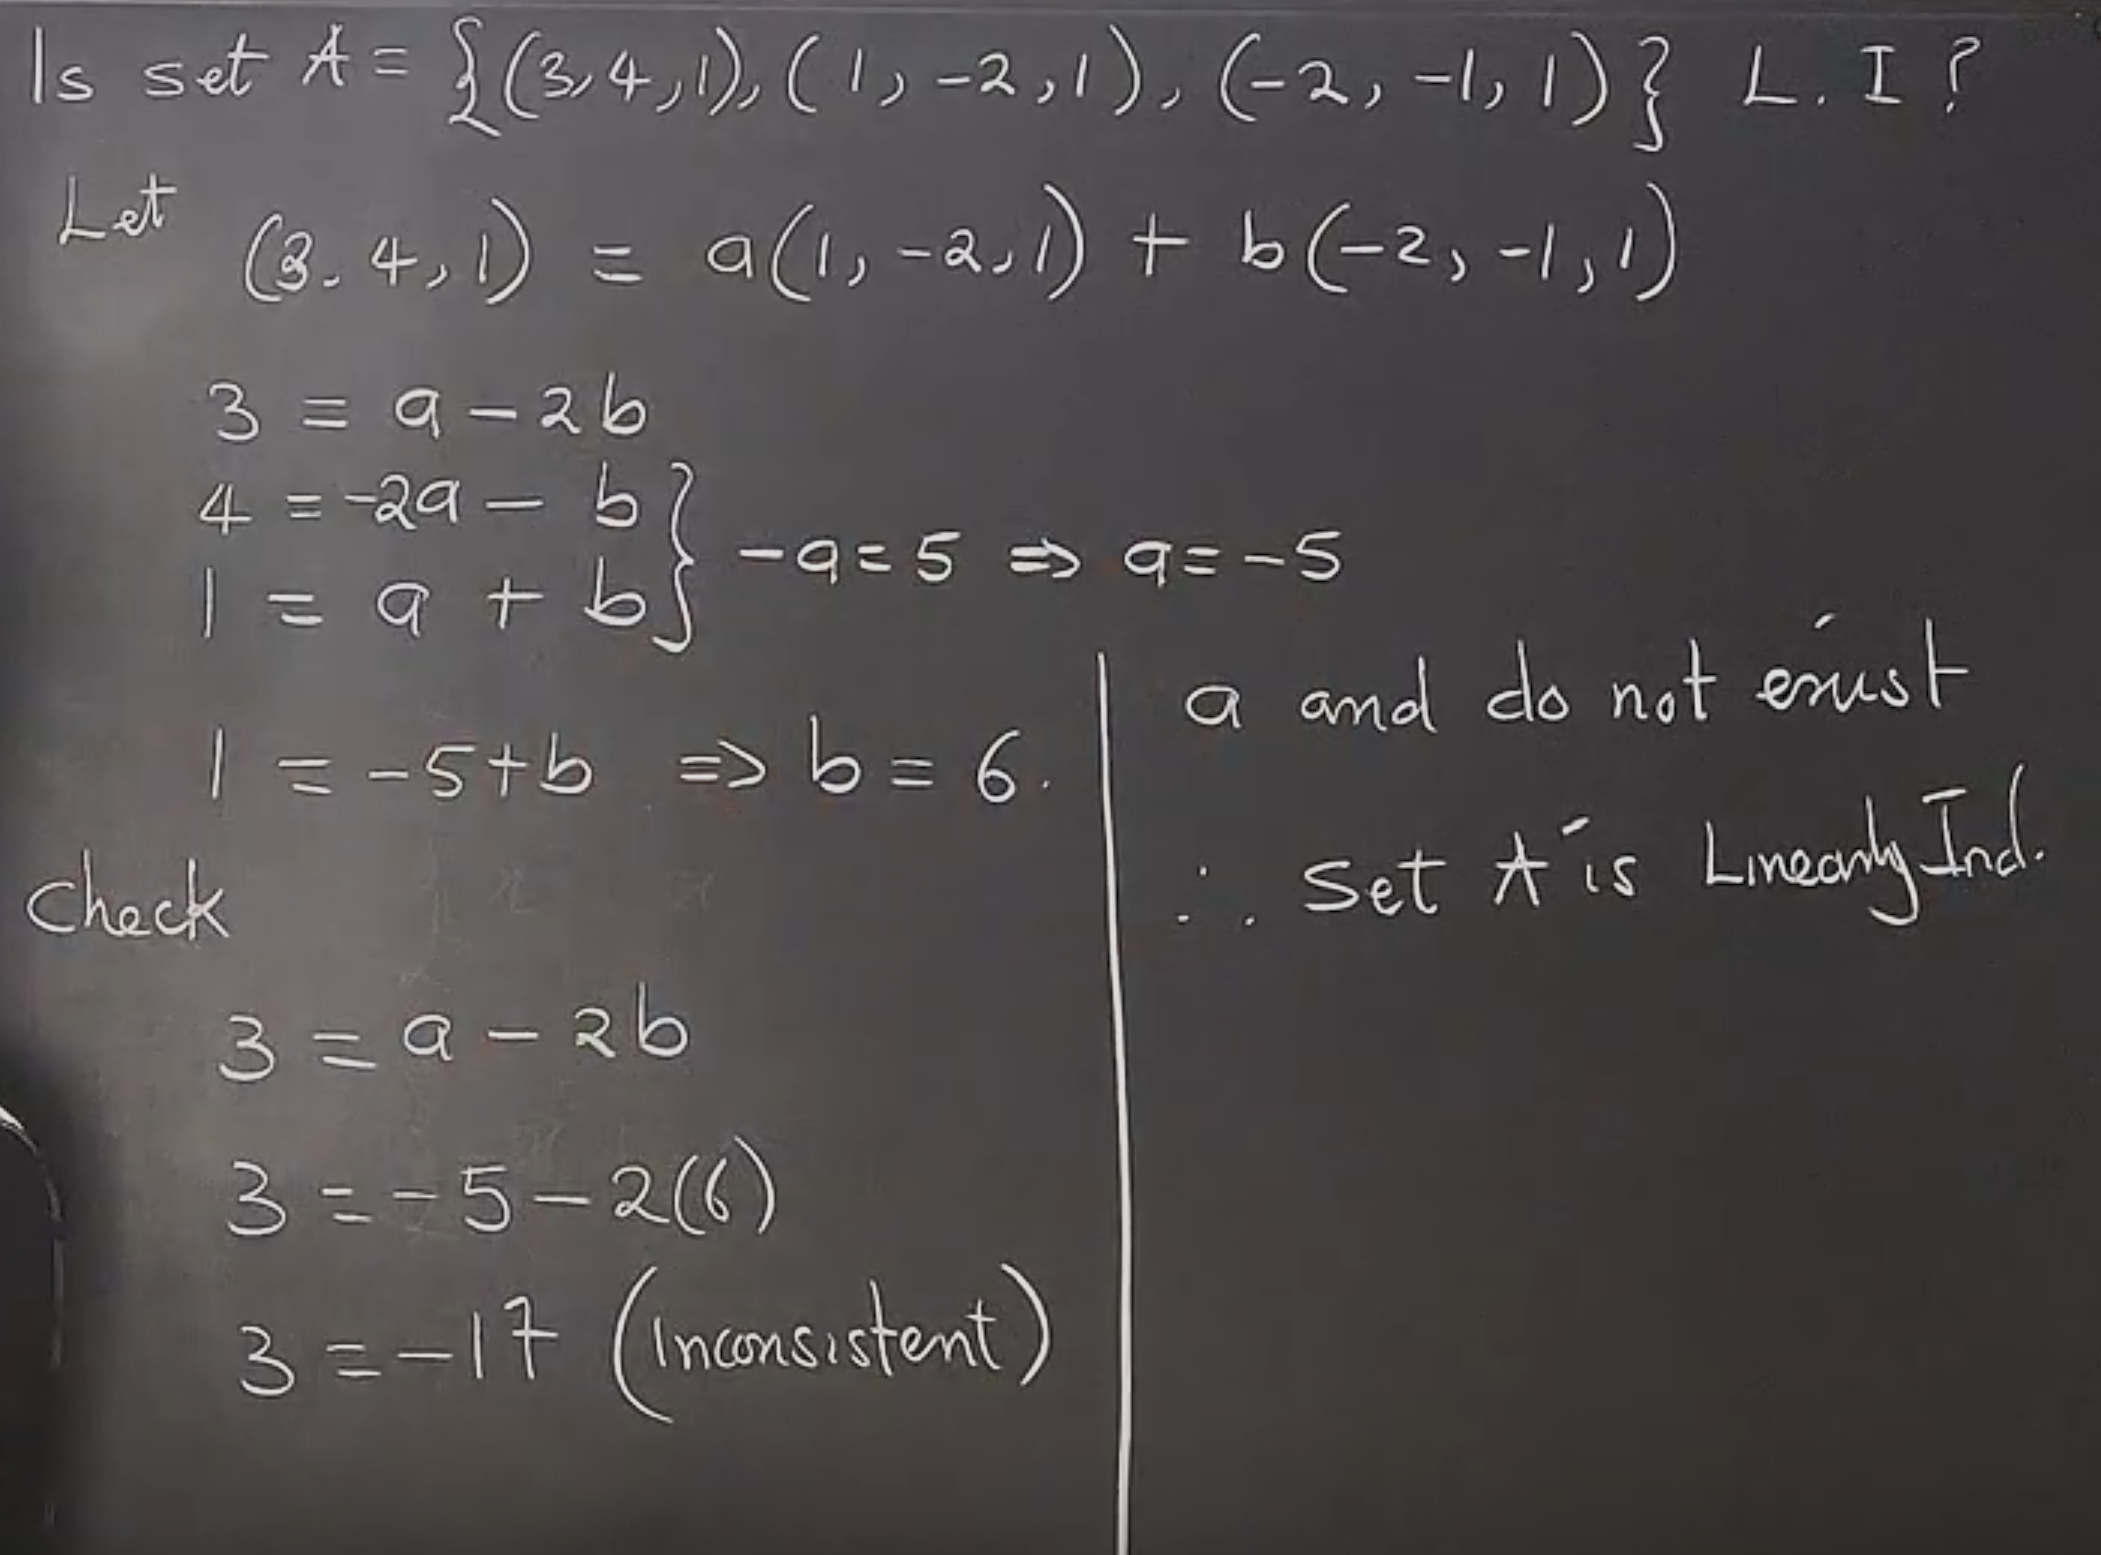 Is set A = {(3,4,1), (1,-2,1), (-2,-1,1)} L.I?
Let (3.4,1) = a(1,-2,1) + b(-2,-1,1)
3 = a - 2b
4 = -2a - b
1 = a + b} -a=5 => a=-5
1 = -5+b => b = 6.
Check
3 = a - 2b
3 = -5 - 2(6)
3 = -17 (inconsistent)
a and do not exist
∴ Set A is Linearly Ind.